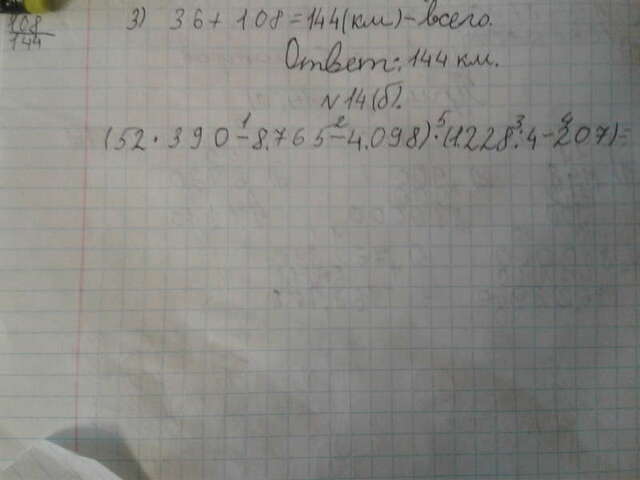 108
144
3) 36+108=144(км)-всего.
Ответ: 144 км.
N 14(б).
(52.390-8.765-4.098):(1228:4-207)=